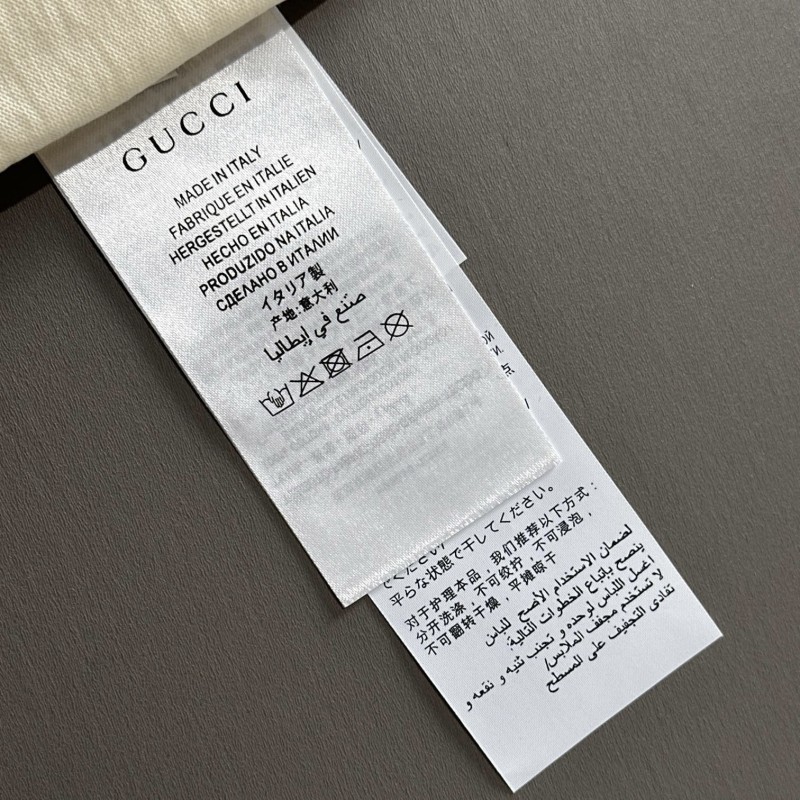 GUCCI
MADE IN ITALY
FABRIQUE EN ITALIE
HERGESTELLT IN ITALIEN
HECHO EN ITALIA
PRODUZIDO NA ITALIA
СДЕЛАНО В ИТАЛИИ
イタリア製
产地:意大利
صنع في إيطاليا
ОЙ
И
点
でください
平らな状態で干してください。
对于护理本品，我们推荐以下方式：
分开洗涤，不可绞拧，不可浸泡，
不可翻转干燥，平摊晾干
لضمان الاستخدام الأصح للباس
ينصح بإتباع الخطوات التالية:
اغسل اللباس لوحده و تجنب ثنيه و نقعه و
لا تستخدم مجفف الملابس/
تفادى التجفيف على المسطح